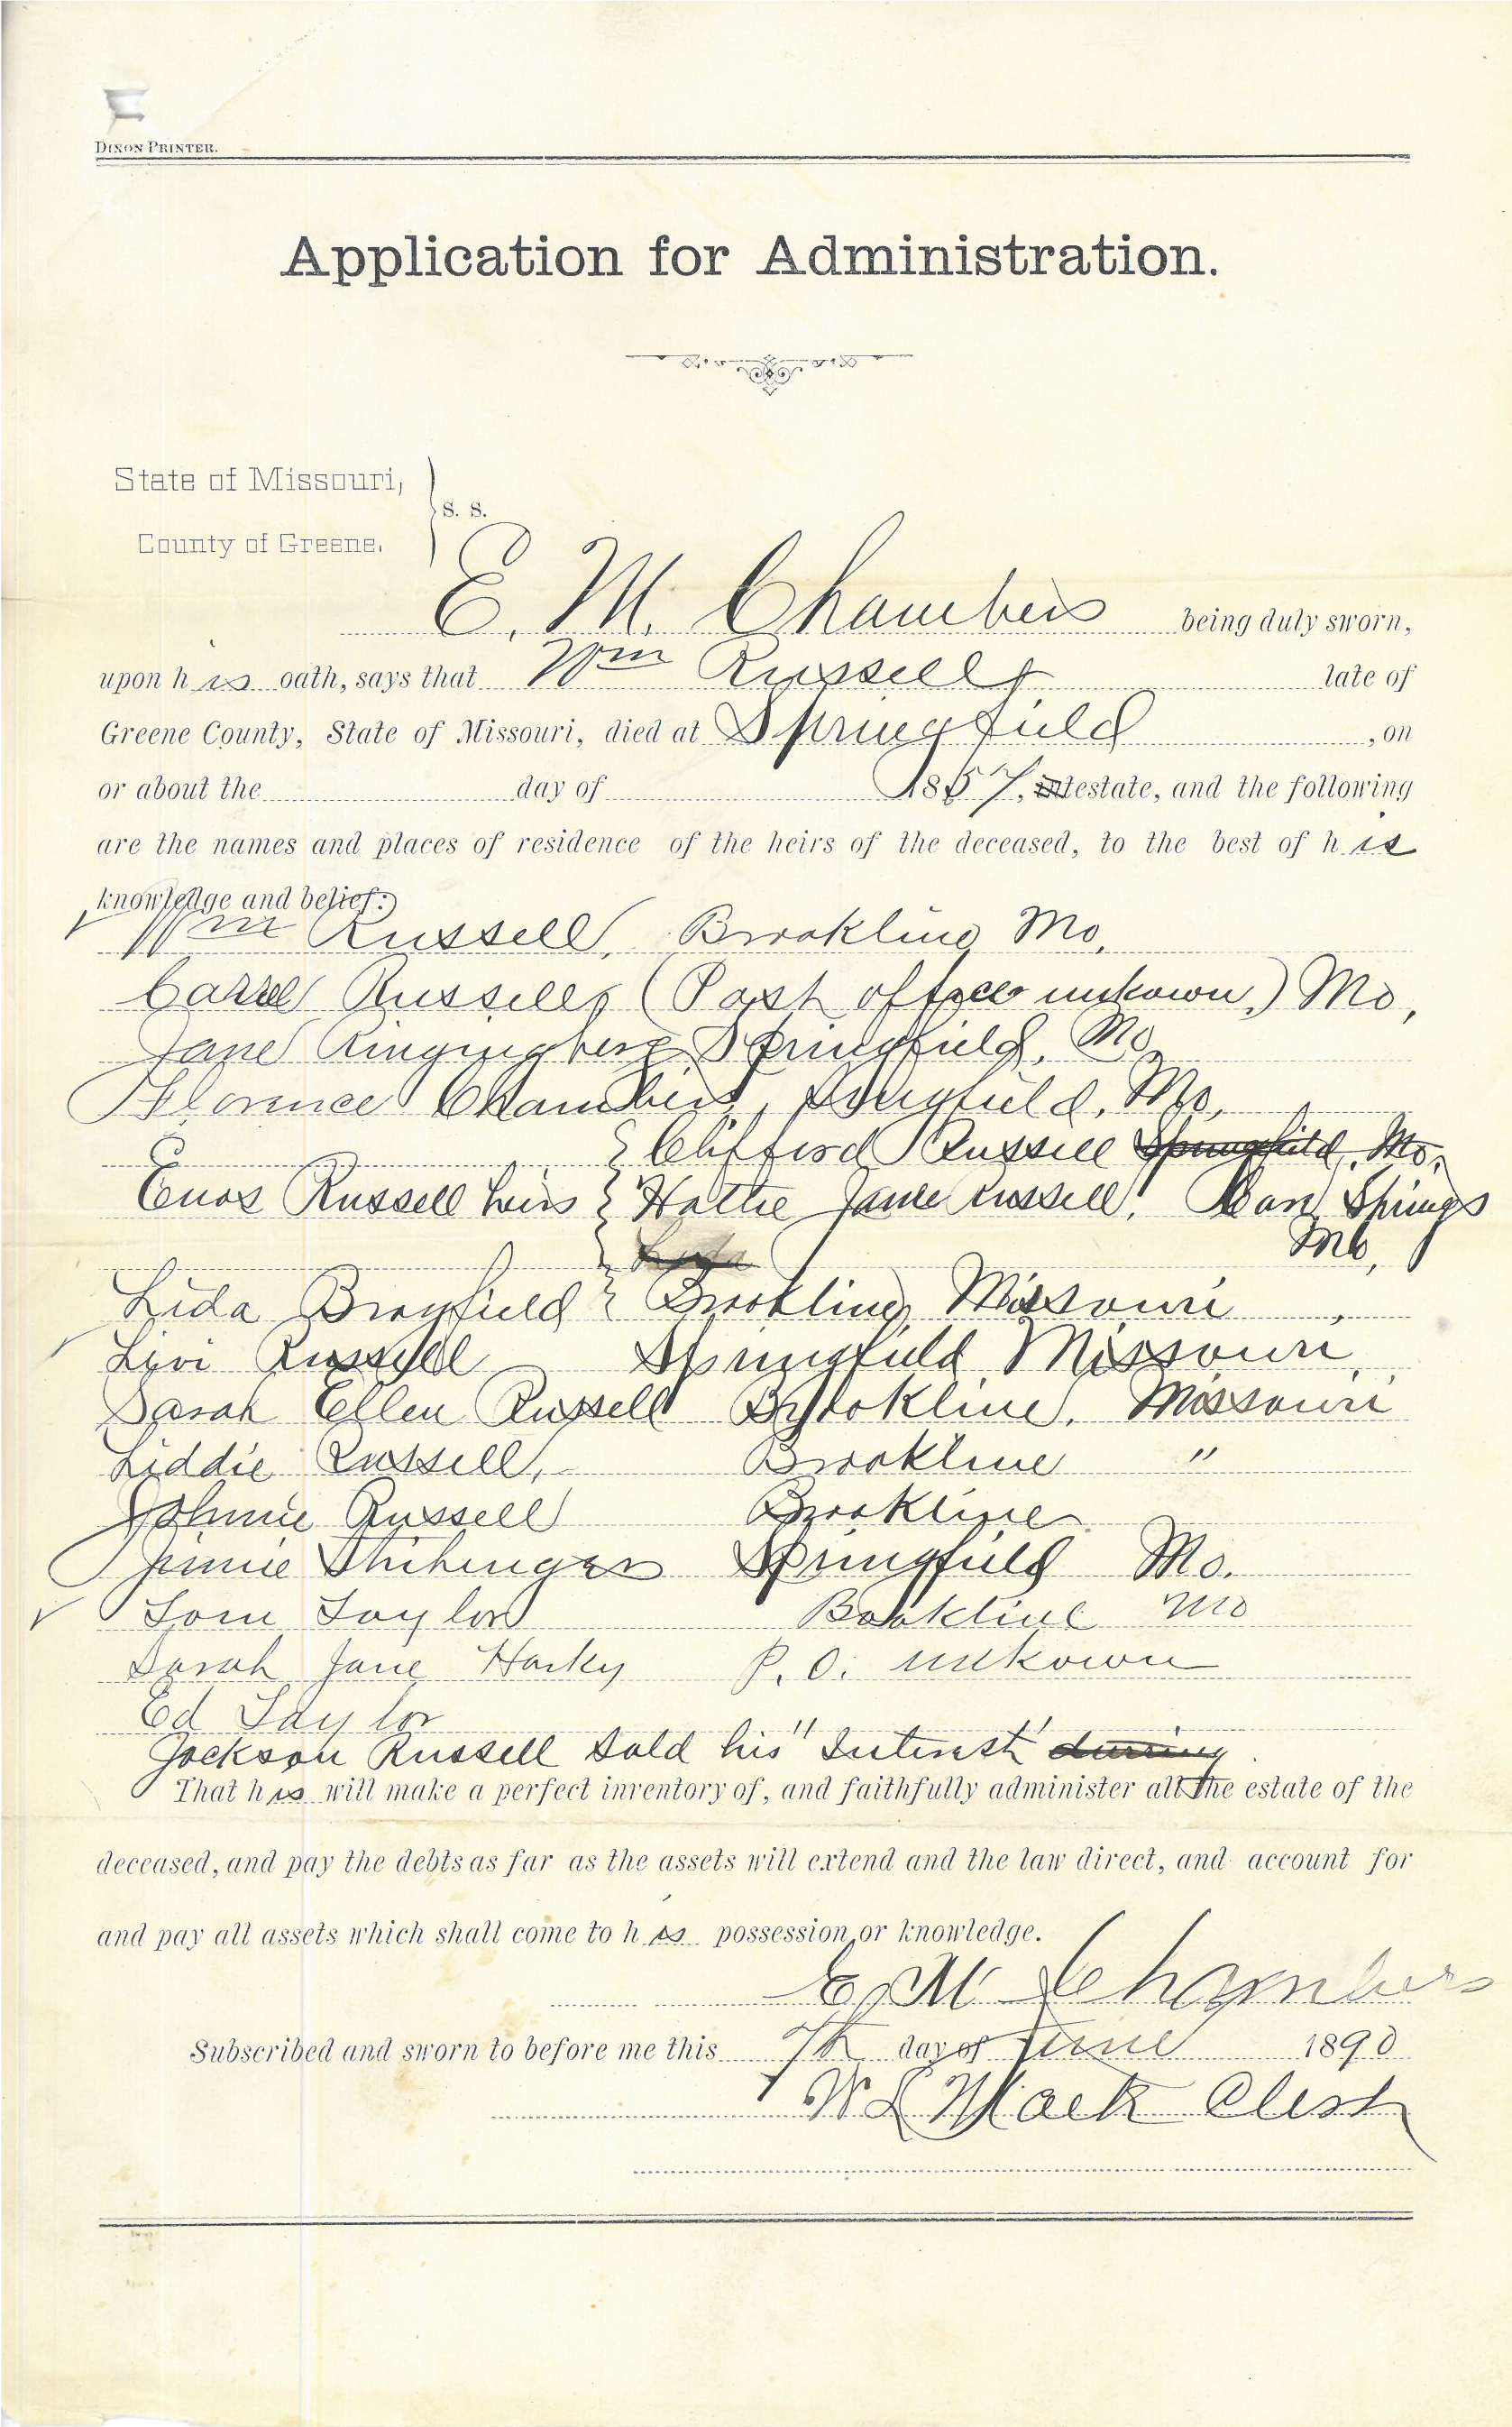 DIXON PRINTER.
Application for Administration.
State of Missouri,
S. S.
County of Greene.
E. M. Chambers being duly sworn,
upon his oath, says that Wm Russell late of
Greene County, State of Missouri, died at Springfield, on
or about the day of 1857, intestate, and the following
are the names and places of residence of the heirs of the deceased, to the best of his
knowledge and belief:
Wm Russell, Brookline Mo,
Russell, (Post office unkown.) Mo,
Jane Springfield, Mo
Florence Chambers, Springfield, Mo,
Clifford Russell Springfield, Mo,
Enos Russell heirs Hattie Jane Russell, Springs
Mo,
Lida
Lida Brayfield Brookline, Missouri,
Livi Russell Springfield Missouri,
Sarah Ellen Russell Brookline, Missouri
Liddie Russell, Brookline "
Johnnie Russell Brookline
Jinnie Springfield Mo.
Tom Taylor Bookline Mo
Sarah Jane Harky P. O. unkown
Ed Taylor
Jackson Russell sold his "Interest" during
That his will make a perfect inventory of, and faithfully administer all the estate of the
deceased, and pay the debts as far as the assets will extend and the law direct, and account for
and pay all assets which shall come to his possession or knowledge.
E M Chambers
Subscribed and sworn to before me this 7th day of June 1890
W L Mack Clerk